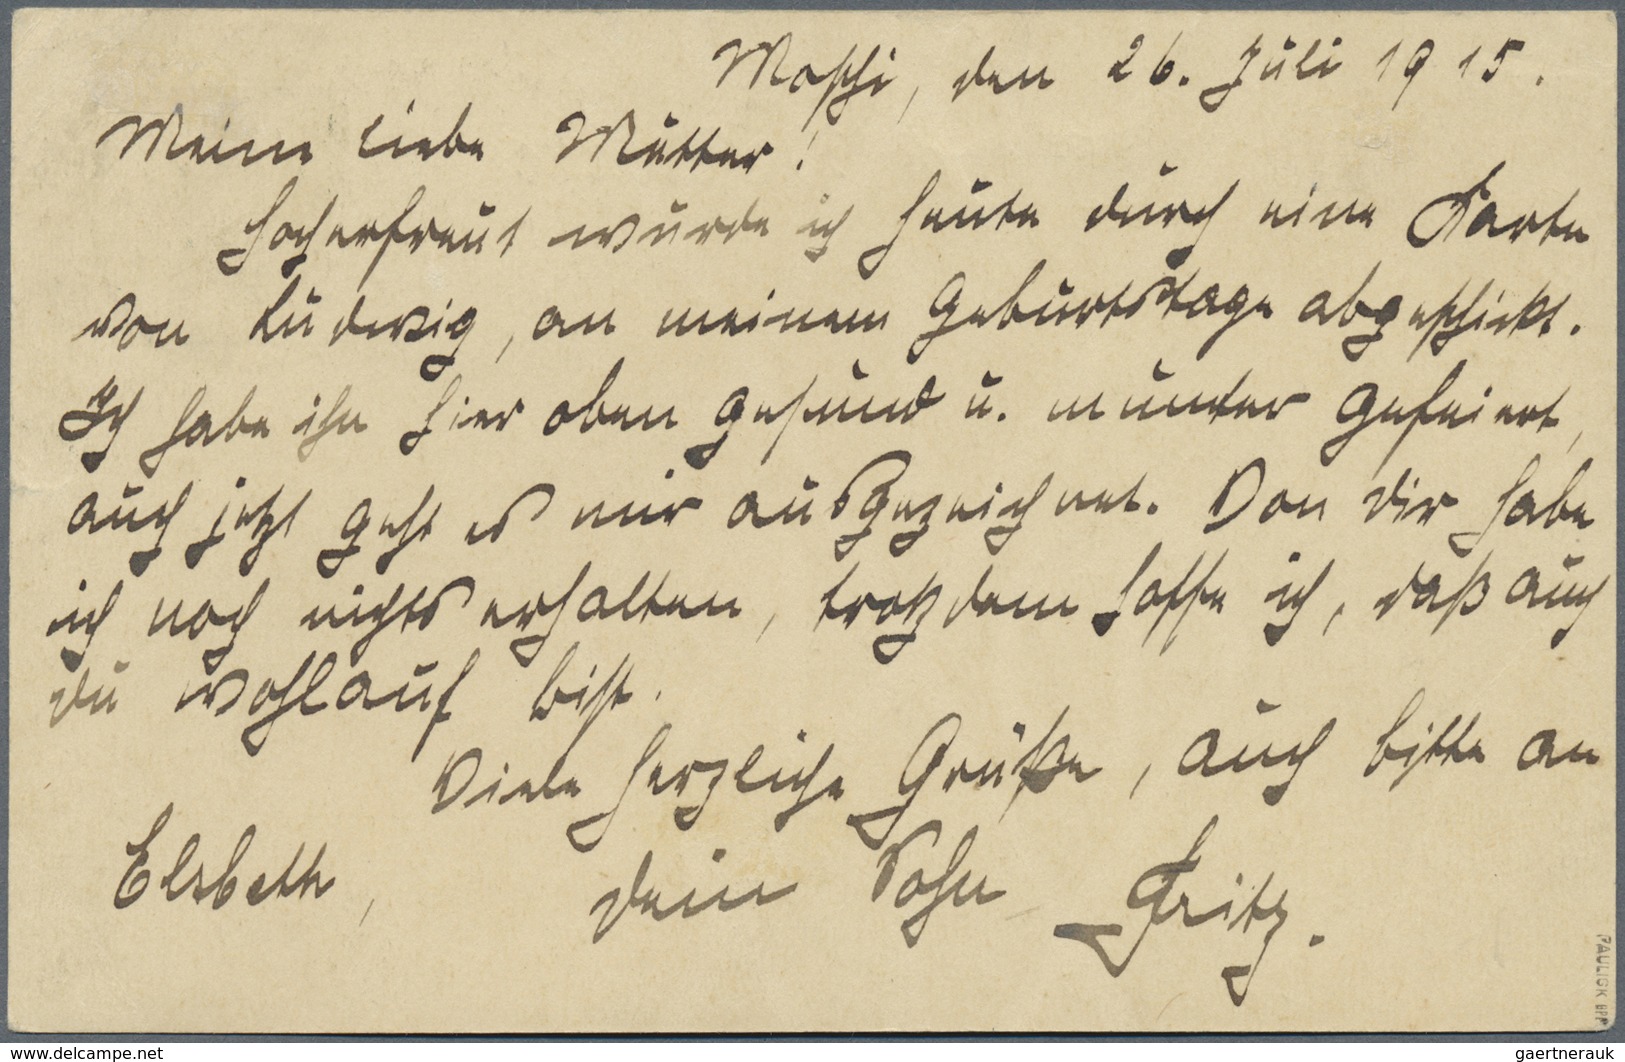 Moschi, den 26. Juli 1915.
Meine liebe Mutter!
Hocherfreut wurde ich heute durch eine Karte
von Ludwig, an meinem Geburtstage abgeschickt.
Ich habe ihn hier oben gesund u. munter gefeiert,
auch jetzt geht es mir ausgezeichnet. Von dir habe
ich noch nichts erhalten, trotzdem hoffe ich, daß auch
du wohlauf bist.
Viele herzliche Grüße, auch bitte an
Elsbeth,
dein Sohn Fritz.
PAULIGK BPP
www.delcampe.net
gaertnerauk